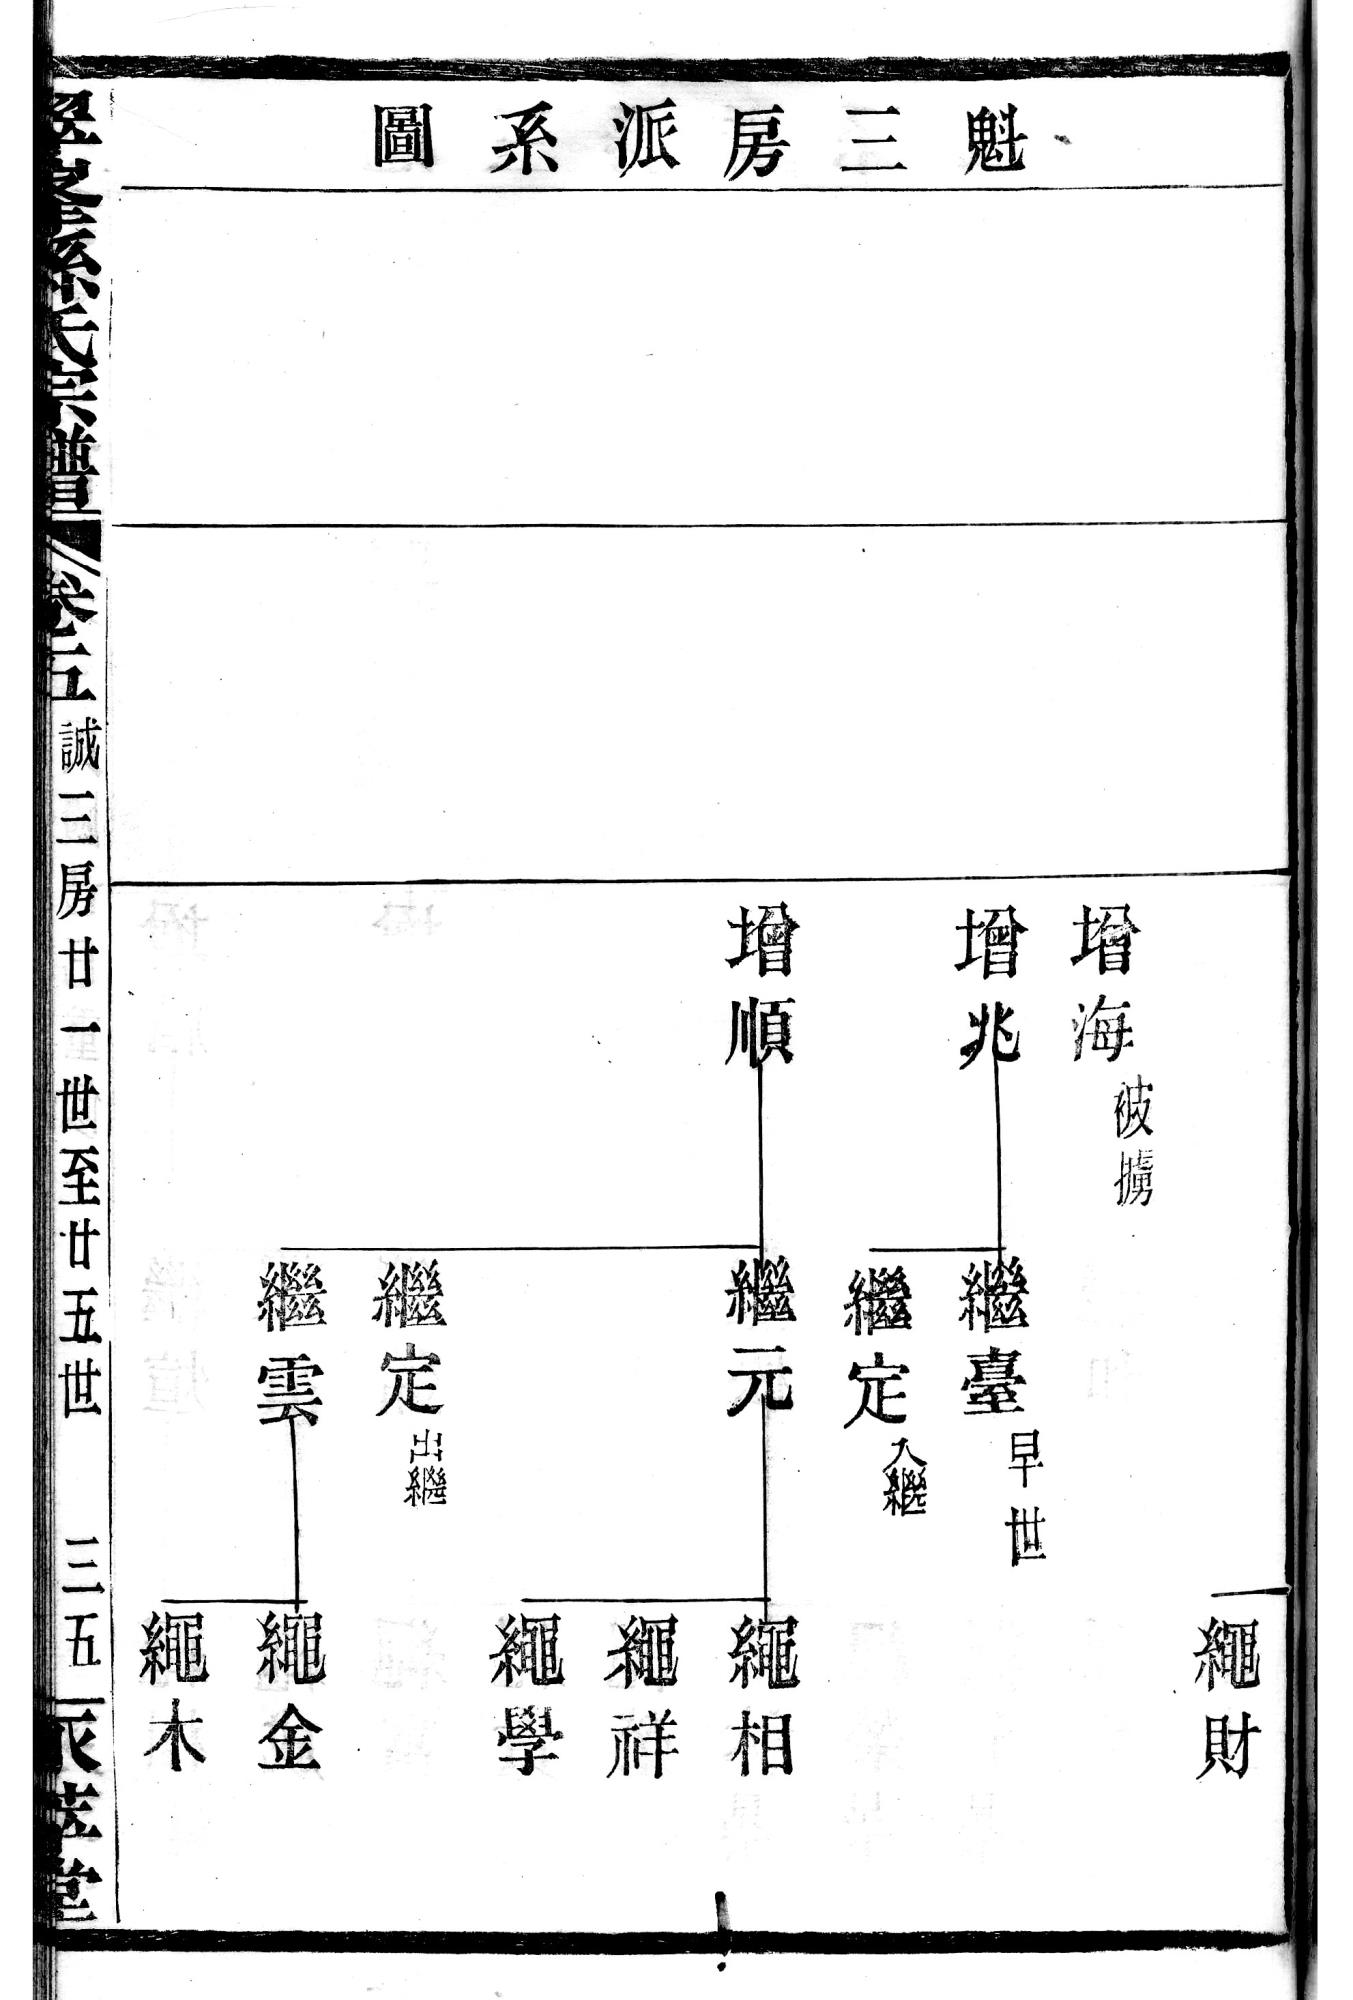 魁三房派系圖
增海 被擄
增兆
增順
繼臺 早世
繼定 入繼
繼元
繼定 出繼
繼雲
繩財
繩相
繩祥
繩學
繩金
繩木
孫氏宗譜
卷五 誠三房廿一世至廿五世 三五
堂